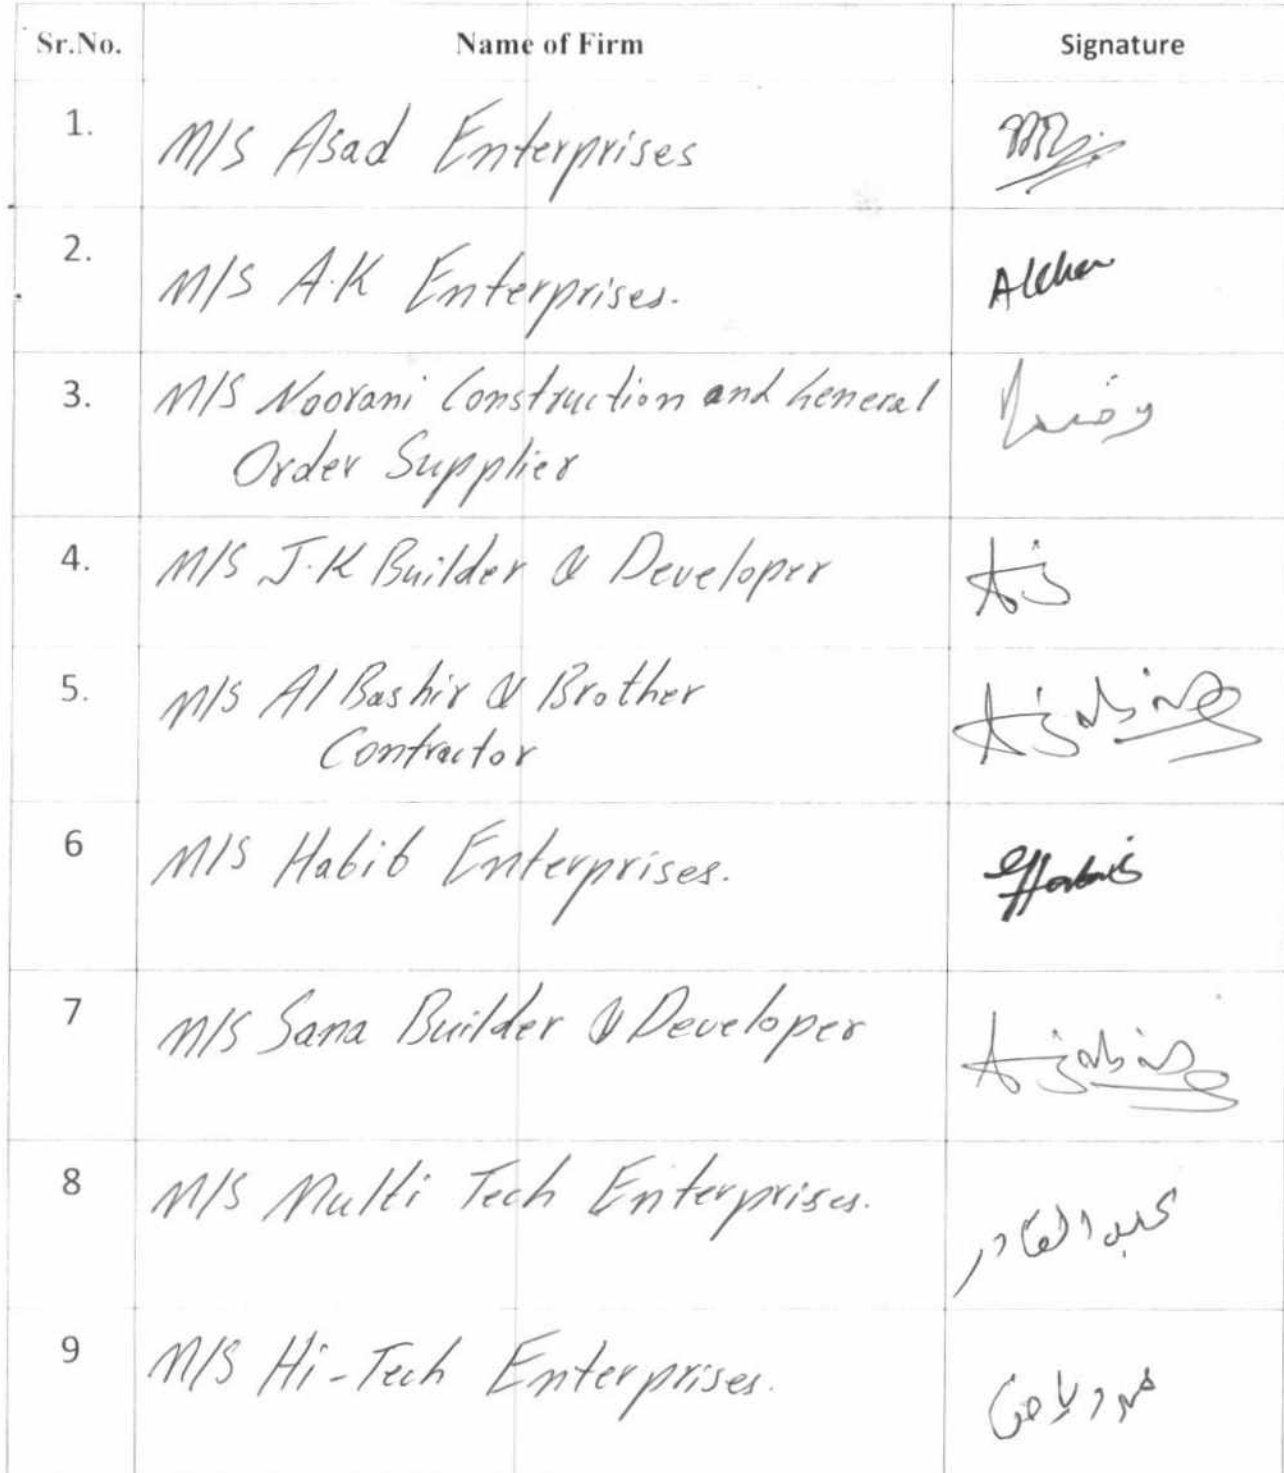 Sr.No. Name of Firm Signature
1. M/S Asad Enterprises
2. M/S A.K Enterprises.
3. M/S Noorani Construction and General
Order Supplier
4. M/S J.K Builder & Developer
5. M/S Al Bashir & Brother
Contractor
6 M/S Habib Enterprises.
7 M/S Sana Builder & Developer
8 M/S Multi Tech Enterprises.
عبدالقادر
9 M/S Hi-Tech Enterprises.